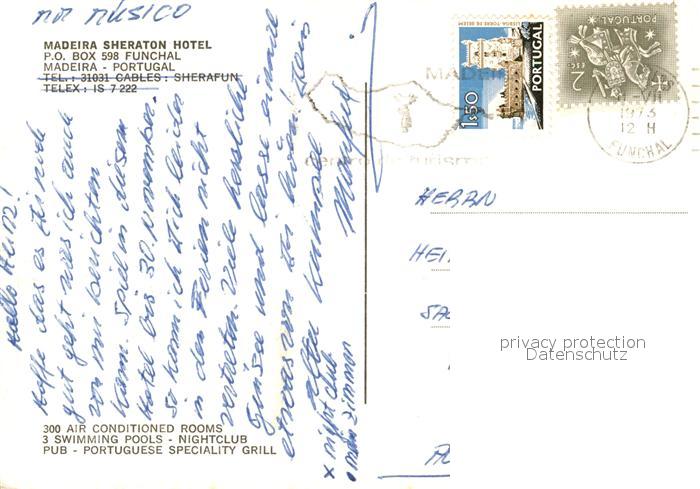 MADEIRA SHERATON HOTEL
P.O. BOX 598 FUNCHAL
MADEIRA - PORTUGAL
TEL.: 31031 CABLES: SHERAFUN
TELEX: IS 7 222
Hallo Heinz!
Hoffe das es dir noch
gut geht was ich auch
von mir berichten
kann. Spiel in diesem
Hotel bis 30. November.
So kann ich dich leider
in den Ferien nicht
vertreten. Viele herzliche
Grüsse und lasse einmal
etwas von dir hören, dein
alter Kumpel
Manfred
x nightclub
o mein Zimmer
300 AIR CONDITIONED ROOMS
3 SWIMMING POOLS - NIGHTCLUB
PUB - PORTUGUESE SPECIALITY GRILL
MADEIRA
centro de turismo
LISBOA-TORRE DE BELEM
1$50
PORTUGAL
PORTUGAL
2 ESC.
1973
12 H
FUNCHAL
HERRN
HEI
privacy protection
Datenschutz